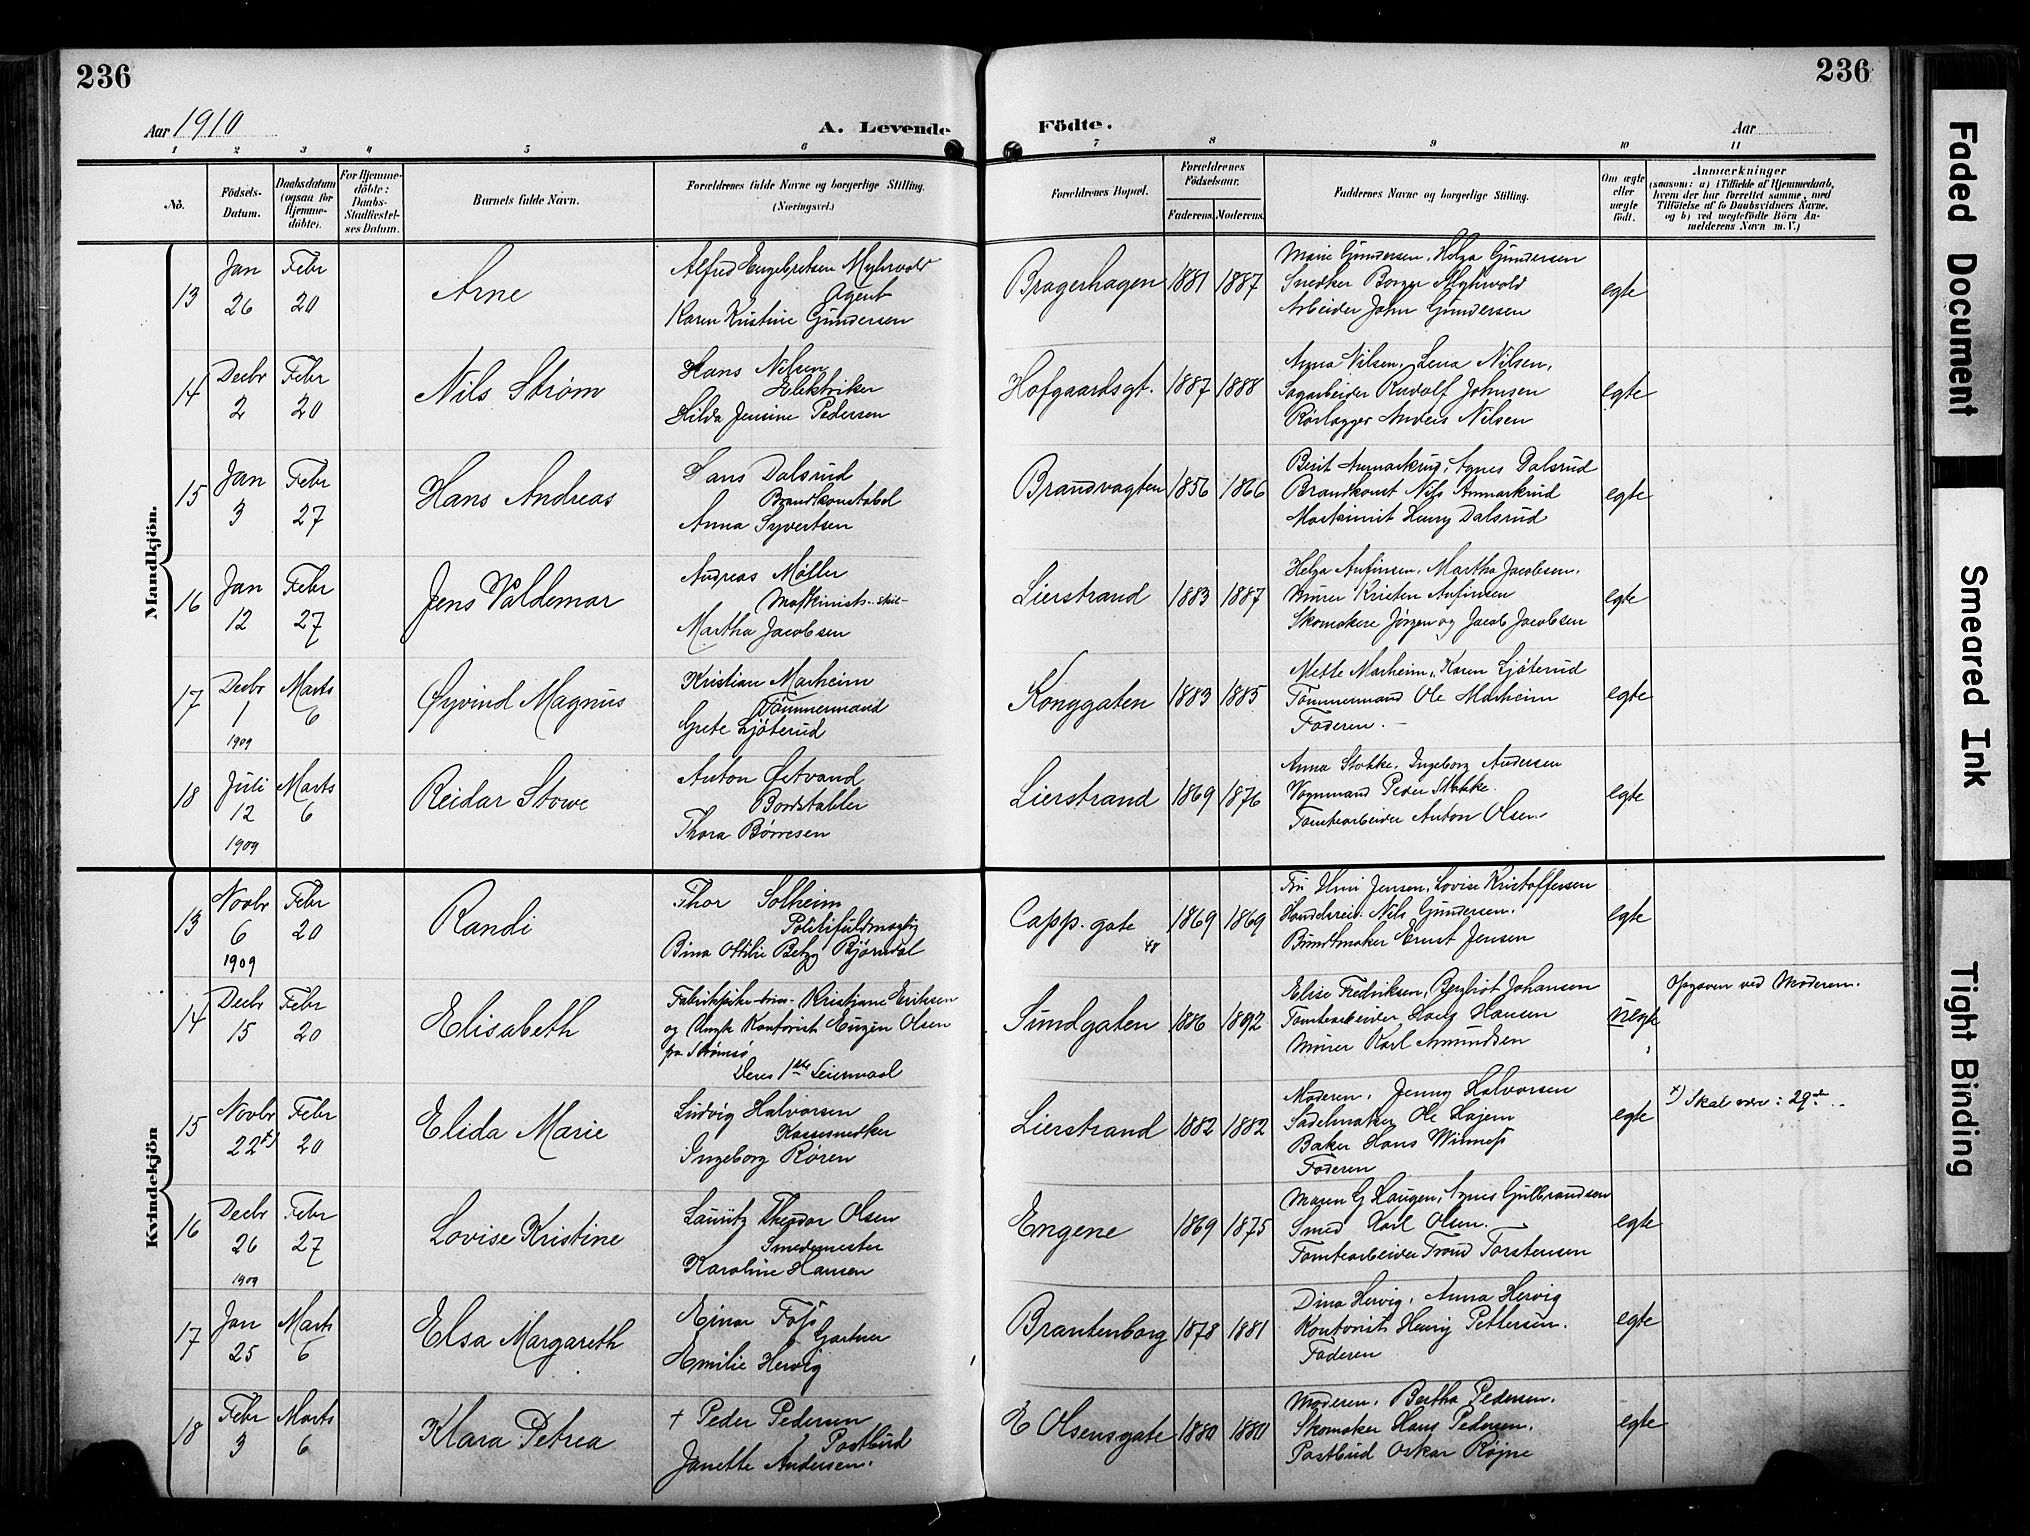 236
236
Aar 1910
A. Levende
Födte.
Aar
1 2 3 4 5 6 7 8 9 10 11
No.
Födsels-
Datum.
Daabsdatum
(ogsaa for
Hjemme-
döbte).
For Hjemme-
döbte:
Daabs-
Stadfæstel-
ses Datum.
Barnets fulde Navn.
Forældrenes fulde Navne og borgerlige Stilling.
(Næringsvei.)
Forældrenes Bopæl.
Forældrenes
Födselsaar.
Faderens. Moderens.
Faddernes Navne og borgerlige Stilling.
Om ægte
eller
uægte
født.
Anmærkninger
(saasom: a) i Tilfælde af Hjemmedaab,
hvem der har forrettet samme, med
Tilføielse af to Daabsvidners Navne,
og b) ved uægtefödte Börn An-
melderens Navn m. V.)
Mandkjön.
13
Jan
26
Febr
20
Arne
Alfred Engebretsen Myhrvold
Agent
Karen Kristine Gundersen
Bragerhagen
1881
1887
Marie Gundersen, Helga Gundersen
Snedker Borger Myhrvold
Arbeider John Gundersen
egte
14
Decbr
2
Febr
20
Nils Strøm
Hans Nilsen
Elektriker
Hilda Jensine Pedersen
Hofgaardsgt.
1887
1888
Anna Nilsen, Lena Nilsen,
Sagarbeider Rudolf Johnsen
Rørlægger Anders Nilsen
egte
15
Jan
3
Febr
27
Hans Andreas
Hans Dalsrud
Brandkonstabel
Anna Syvertsen
Brandvagten
1856
1866
Berit Anmarkrud, Agnes Dalsrud
Brandkonst Nils Anmarkrud
Maskinist Henry Dalsrud
egte
16
Jan
12
Febr
27
Jens Valdemar
Andreas Møller
Martha Jacobsen
Lierstrand
1883
1887
Helga Anfinsen, Martha Jacobsen,
Murer Kristen Anfinsen
Skomakere Jørgen og Jacob Jacobsen
egte
17
Decbr
1
1909
Marts
6
Øyvind Magnus
Kristian Marheim
Tømmermand
Grete Ljøterud
Konggaten
1883
1885
Mette Marheim, Karen Ljøterud
Tømmermand Ole Marheim
Faderen. —
egte
18
Juli
12
1909
Marts
6
Reidar Stowe
Anton Østvand
Bordstabler
Thora Børresen
Lierstrand
1869
1876
Anna Stokke, Ingeborg Andersen
Vognmand Peder Stokke
Tomtearbeider Anton Olsen
egte
Kvindekjön
13
Novbr
6
1909
Febr
20
Randi
Thor Solheim
Politifuldmægtig
Bina Ottilie Betzy Bjørndal
Capp. gate
1869
1869
Jensen, Lovise Kristoffersen
Handelsrei: Nils Gundersen.
Bundtmaker Ernst Jensen
egte
14
Decbr
15
Febr
20
Elisabeth
Fabrikpike Kristiane Eriksen
og Ungk Kontorist Eugen Olsen
fra Strømsø
Deres 1ste Leiermaal
Sundgaten
1886
1892
Elise Fredriksen, Bergliot Johansen
Tomtearbeider Hans Hansen
Murer Karl Amundsen
uegte
Opgaven ved Moderen.
15
Novbr
22 x)
Febr
20
Elida Marie
Ludvig Halvorsen
Kassesnedker
Ingeborg Røren
Lierstrand
1882
1882
Moderen, Jenny Halvorsen
Sadelmaker Ole Hajem
Baker Hans Winnes
Faderen
egte
x) Skal være: 29de
16
Decbr
26
1909
Febr
27
Lovise Kristine
Lauritz Theodor Olsen
Smedemester
Karoline Hansen
Engene
1869
1875
Maren G Haugen, Agnes Gulbrandsen
Smed Karl Olsen. —
Tomtearbeider Trond Torstensen
egte
17
Jan
25
Marts
6
Elsa Margareth
Einar Foss
Gartner
Emilie Hervig
Brantenborg
1878
1881
Dina Hervig, Anna Hervig
Kontorist Henry Pettersen.
Faderen
egte
18
Febr
3
Marts
6
Klara Petrea
+ Peder Pedersen
Postbud
Janette Andersen.
E Olsensgate
1880
1880
Moderen, Bertha Pedersen.
Skomaker Hans Pedersen.
Postbud Oskar Røjne
egte
Faded Document
Smeared Ink
Tight Binding